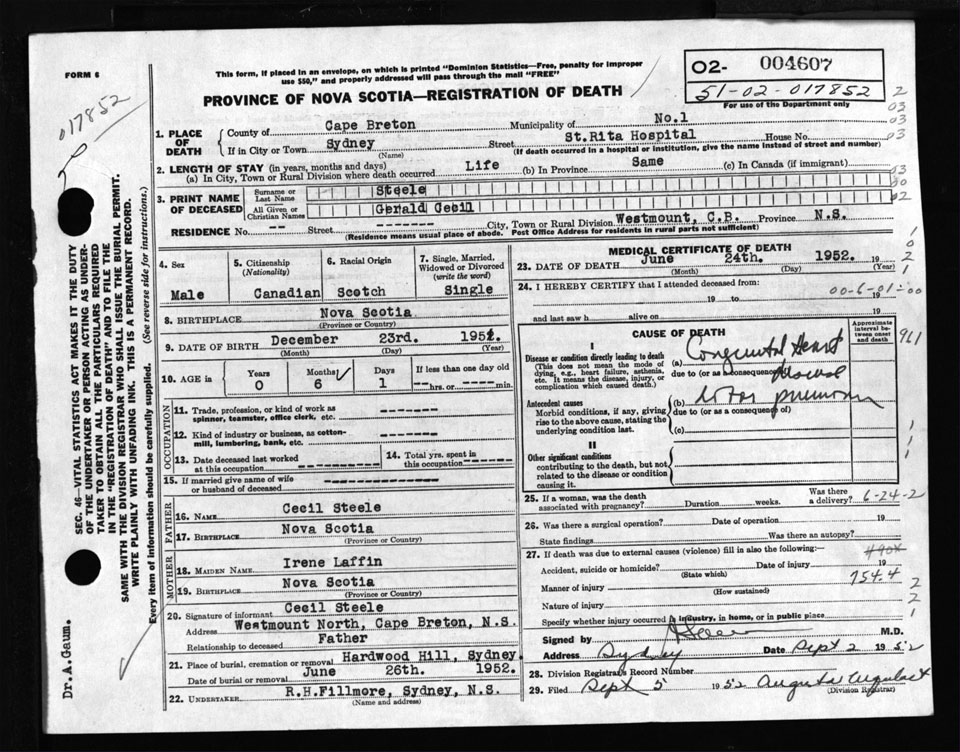 FORM 6
This form, if placed in an envelope, on which is printed "Dominion Statistics—Free, penalty for improper
use $50," and properly addressed will pass through the mail "FREE"
PROVINCE OF NOVA SCOTIA—REGISTRATION OF DEATH
O2- 004607
51-02-017852
For use of the Department only
017852
1. PLACE OF DEATH
County of Cape Breton Municipality of No.1
If in City or Town Sydney Street St.Rita Hospital House No.
(Name) (If death occurred in a hospital or institution, give the name instead of street and number)
2. LENGTH OF STAY (in years, months and days)
(a) In City, Town or Rural Division where death occurred Life (b) In Province Same (c) In Canada (if immigrant)
3. PRINT NAME OF DECEASED
Surname or Last Name Steele
All Given or Christian Names Gerald Cecil
RESIDENCE No. -- Street ------ City, Town or Rural Division Westmount, C.B. Province N.S.
(Residence means usual place of abode. Post Office Address for residents in rural parts not sufficient)
4. Sex
Male
5. Citizenship
(Nationality)
Canadian
6. Racial Origin
Scotch
7. Single, Married,
Widowed or Divorced
(write the word)
Single
8. BIRTHPLACE Nova Scotia
(Province or Country)
9. DATE OF BIRTH December 23rd. 1951.
(Month) (Day) (Year)
10. AGE in
Years Months Days If less than one day old
0 6 1 --- hrs. or ------ min.
OCCUPATION
11. Trade, profession, or kind of work as
spinner, teamster, office clerk, etc. -------
12. Kind of industry or business, as cotton-
mill, lumbering, bank, etc. -------
13. Date deceased last worked
at this occupation ----------
14. Total yrs. spent in
this occupation --------
15. If married give name of wife
or husband of deceased ------------
FATHER
16. NAME Cecil Steele
17. BIRTHPLACE Nova Scotia
(Province or Country)
MOTHER
18. MAIDEN NAME Irene Laffin
19. BIRTHPLACE Nova Scotia
(Province or Country)
20. Signature of informant Cecil Steele
Address Westmount North, Cape Breton, N.S.
Relationship to deceased Father
21. Place of burial, cremation or removal Hardwood Hill, Sydney.
Date of burial or removal June 26th. 1952.
22. UNDERTAKER R.H.Fillmore, Sydney, N.S.
(Name and address)
MEDICAL CERTIFICATE OF DEATH
23. DATE OF DEATH June 24th. 1952. 19
(Month) (Day) (Year)
24. I HEREBY CERTIFY that I attended deceased from:
00-6-01-00
19 to 19
and last saw h alive on 19
CAUSE OF DEATH
Approximate
interval between
onset and death
I
Disease or condition directly leading to death
(This does not mean the mode of
dying, e.g., heart failure, asthenia,
etc. It means the disease, injury, or
complication which caused death.)
(a) Congenital Heart
due to (or as a consequence of)
961
Antecedent causes
Morbid conditions, if any, giving
rise to the above cause, stating the
underlying condition last.
(b) Lobar pneumonia
due to (or as a consequence of)
(c)
II
Other significant conditions
contributing to the death, but not
related to the disease or condition
causing it.
25. If a woman, was the death
associated with pregnancy? Duration weeks. Was there
a delivery? 6-24-2
26. Was there a surgical operation? Date of operation 19
State findings Was there an autopsy?
27. If death was due to external causes (violence) fill in also the following:— 490X
Accident, suicide or homicide? Date of injury 19
(State which) 754.4
Manner of injury
(How sustained)
Nature of injury
Specify whether injury occurred in industry, in home, or in public place
Signed by M.D.
Address Sydney Date Sept 2 1952
28. Division Registrar's Record Number
29. Filed Sept 5 1952
(Division Registrar)
SEC. 46—VITAL STATISTICS ACT MAKES IT THE DUTY
OF THE UNDERTAKER OR PERSON ACTING AS UNDER-
TAKER TO OBTAIN ALL THE PARTICULARS REQUIRED
IN THE "REGISTRATION OF DEATH" AND TO FILE THE
SAME WITH THE DIVISION REGISTRAR WHO SHALL ISSUE THE BURIAL PERMIT.
WRITE PLAINLY WITH UNFADING INK. THIS IS A PERMANENT RECORD.
Every item of information should be carefully supplied. (See reverse side for instructions.)
Dr.A.Gaum.
2
03
03
03
03
00
02
1
0
2
1
1
1
2
2
1